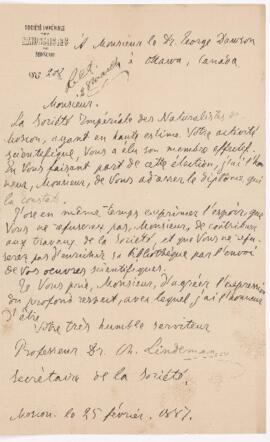 SOCIÉTÉ IMPÉRIALE
DES
NATURALISTES
DE MOSCOU
№ 208
À Monsieur le Dr. George Dawson
à Ottawa, Canada
Monsieur.
La Société Impériale des Naturalistes de
Moscou, ayant en haute estime Votre activité
scientifique, Vous a élu son membre effectif.
En Vous faisant part de cette élection, j'ai l'hon-
neur, Monsieur, de Vous adresser le diplôme, qui
la constate.
J'ose en même temps exprimer l'espoir, que
Vous ne refuserez pas, Monsieur, de contribuer
aux travaux de la Société, et que Vous ne refu-
serez pas d'enrichir sa bibliothèque par l'envoi
de Vos oeuvres scientifiques.
Je Vous prie, Monsieur, d'agréer l'expression
du profond respect, avec lequel, j'ai l'honneur
d'être
Votre très humble serviteur
Professeur Dr. Ch. Lindeman
Secrétaire de la Société.
Moscou. le 25 février. 1887.